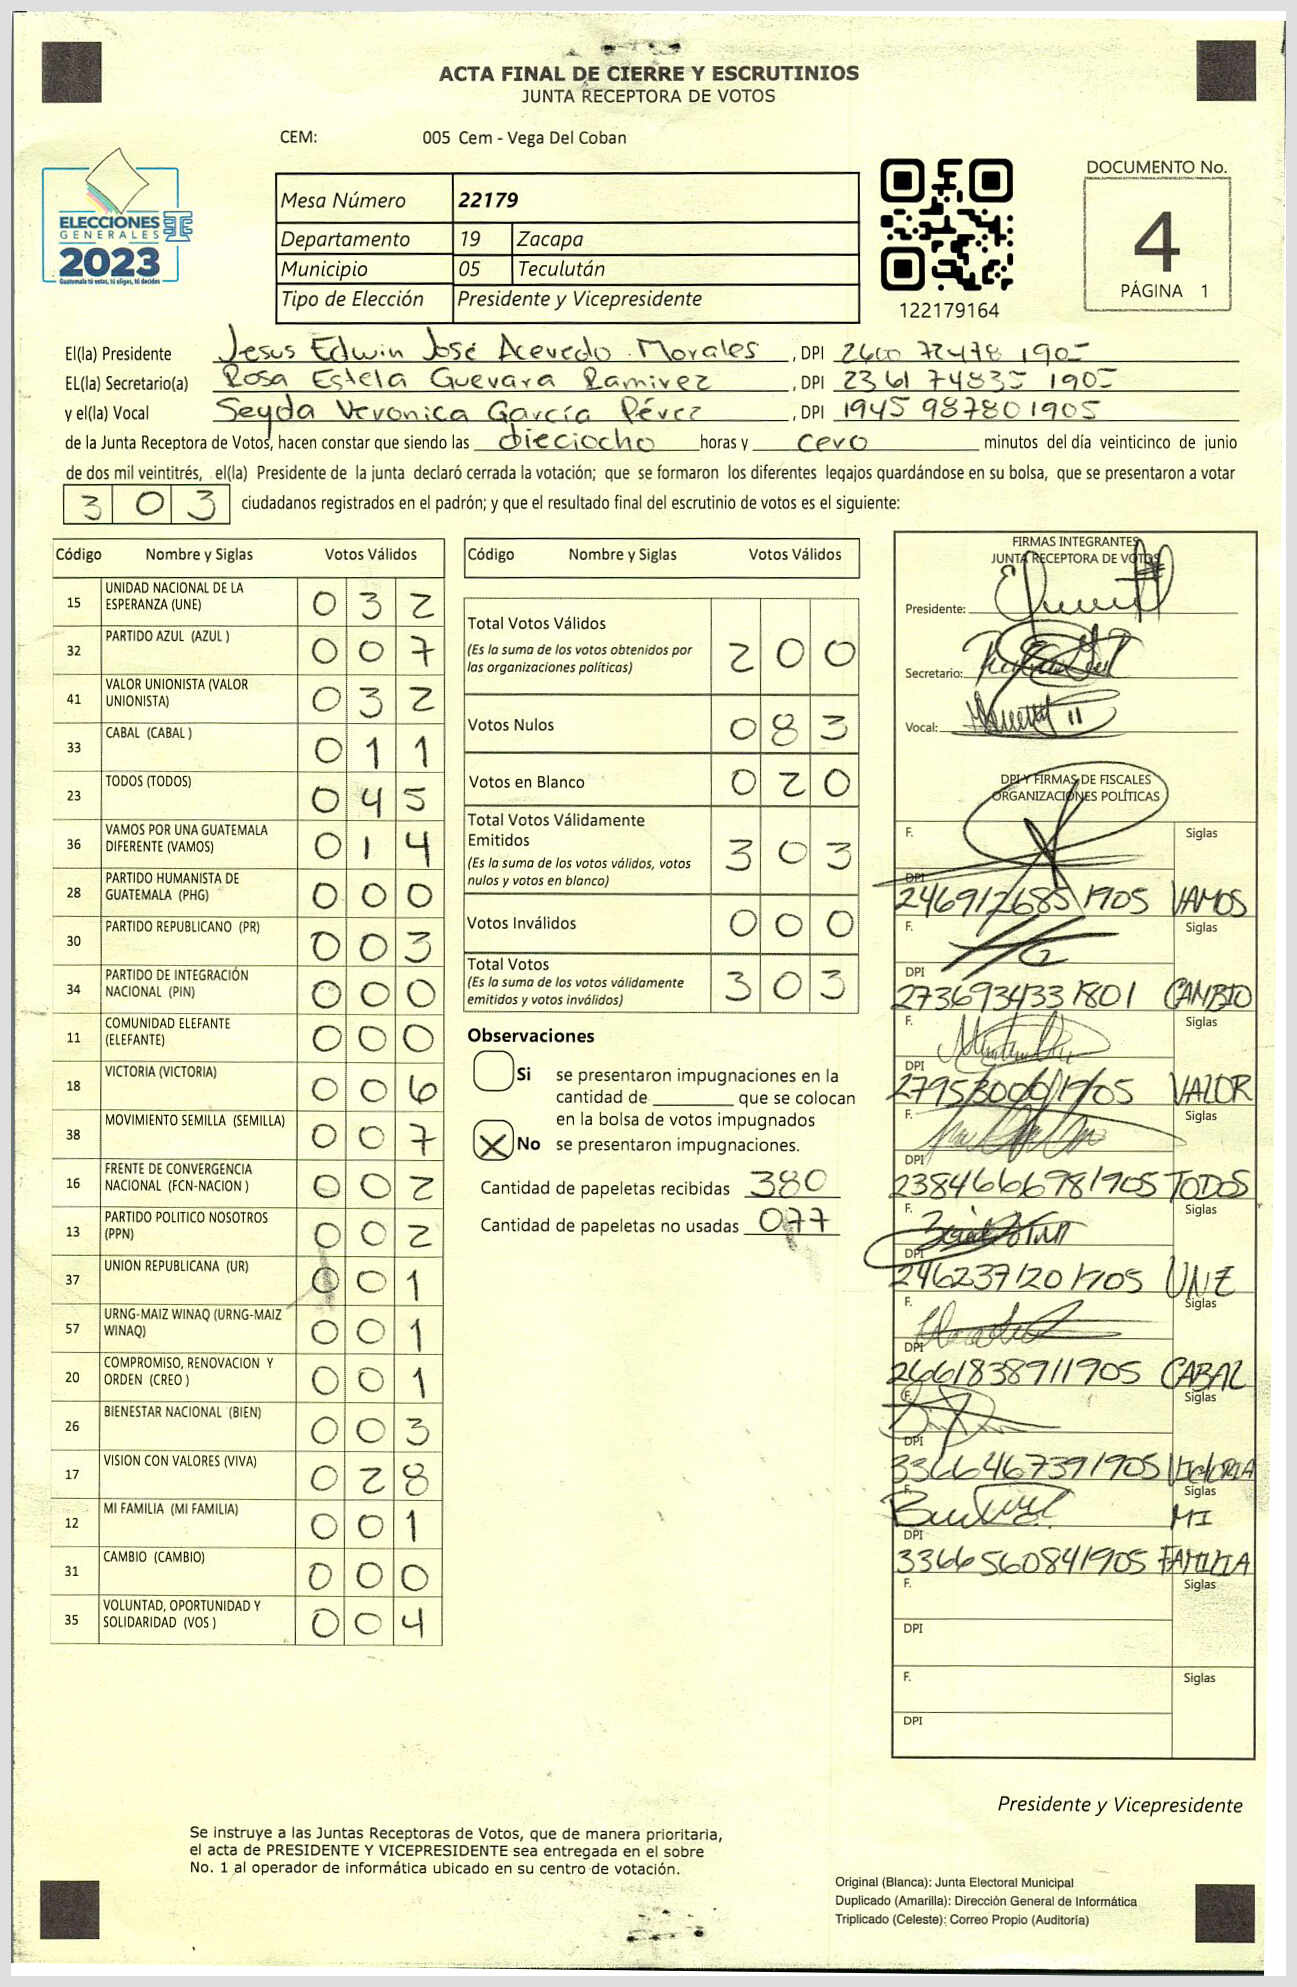 ACTA FINAL DE CIERRE Y ESCRUTINIOS
JUNTA RECEPTORA DE VOTOS
CEM: 005 Cem - Vega Del Coban
ELECCIONES
GENERALES
2023
Guatemala tú votas, tú eliges, tú decides
Mesa Número 22179
Departamento 19 Zacapa
Municipio 05 Teculután
Tipo de Elección Presidente y Vicepresidente
122179164
DOCUMENTO No.
4
PÁGINA 1
El(la) Presidente Jesus Edwin José Acevedo Morales, DPI 2600 72478 1905
EL(la) Secretario(a) Rosa Estela Guevara Ramirez, DPI 2361 74835 1905
y el(la) Vocal Seyda Veronica García Pérez, DPI 1945 98780 1905
de la Junta Receptora de Votos, hacen constar que siendo las dieciocho horas y cero minutos del día veinticinco de junio
de dos mil veintitrés, el(la) Presidente de la junta declaró cerrada la votación; que se formaron los diferentes legajos quardándose en su bolsa, que se presentaron a votar
303 ciudadanos registrados en el padrón; y que el resultado final del escrutinio de votos es el siguiente:
Código Nombre y Siglas Votos Válidos
15 UNIDAD NACIONAL DE LA ESPERANZA (UNE) 032
32 PARTIDO AZUL (AZUL ) 007
41 VALOR UNIONISTA (VALOR UNIONISTA) 032
33 CABAL (CABAL ) 011
23 TODOS (TODOS) 045
36 VAMOS POR UNA GUATEMALA DIFERENTE (VAMOS) 014
28 PARTIDO HUMANISTA DE GUATEMALA (PHG) 000
30 PARTIDO REPUBLICANO (PR) 003
34 PARTIDO DE INTEGRACIÓN NACIONAL (PIN) 000
11 COMUNIDAD ELEFANTE (ELEFANTE) 000
18 VICTORIA (VICTORIA) 006
38 MOVIMIENTO SEMILLA (SEMILLA) 007
16 FRENTE DE CONVERGENCIA NACIONAL (FCN-NACION ) 002
13 PARTIDO POLITICO NOSOTROS (PPN) 002
37 UNION REPUBLICANA (UR) 001
57 URNG-MAIZ WINAQ (URNG-MAIZ WINAQ) 001
20 COMPROMISO, RENOVACION Y ORDEN (CREO ) 001
26 BIENESTAR NACIONAL (BIEN) 003
17 VISION CON VALORES (VIVA) 028
12 MI FAMILIA (MI FAMILIA) 001
31 CAMBIO (CAMBIO) 000
35 VOLUNTAD, OPORTUNIDAD Y SOLIDARIDAD (VOS ) 004
Código Nombre y Siglas Votos Válidos
Total Votos Válidos 200
(Es la suma de los votos obtenidos por
las organizaciones políticas)
Votos Nulos 083
Votos en Blanco 020
Total Votos Válidamente
Emitidos 303
(Es la suma de los votos válidos, votos
nulos y votos en blanco)
Votos Inválidos 000
Total Votos 303
(Es la suma de los votos válidamente
emitidos y votos inválidos)
Observaciones
Si se presentaron impugnaciones en la
cantidad de ________ que se colocan
en la bolsa de votos impugnados
X No se presentaron impugnaciones.
Cantidad de papeletas recibidas 380
Cantidad de papeletas no usadas 077
FIRMAS INTEGRANTES
JUNTA RECEPTORA DE VOTOS
Presidente:
Secretario:
Vocal:
DPI Y FIRMAS DE FISCALES
ORGANIZACIONES POLÍTICAS
F. Siglas
DPI
246912685 1905 VAMOS
F. Siglas
DPI
2736934331801 CAMBIO
F. Siglas
DPI
VALOR
F. Siglas
DPI
2384666981905 TODOS
F. Siglas
DPI
2462371201905 UNE
F. Siglas
DPI
2661838911905 CABAL
F. Siglas
DPI
3366467391905 VICTORIA
F. Siglas
DPI
3366560841905 MI FAMILIA
F. Siglas
DPI
F. Siglas
DPI
Presidente y Vicepresidente
Se instruye a las Juntas Receptoras de Votos, que de manera prioritaria,
el acta de PRESIDENTE Y VICEPRESIDENTE sea entregada en el sobre
No. 1 al operador de informática ubicado en su centro de votación.
Original (Blanca): Junta Electoral Municipal
Duplicado (Amarilla): Dirección General de Informática
Triplicado (Celeste): Correo Propio (Auditoría)